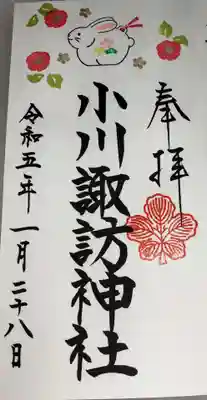 奉拝
小川諏訪神社
令和五年一月二十八日